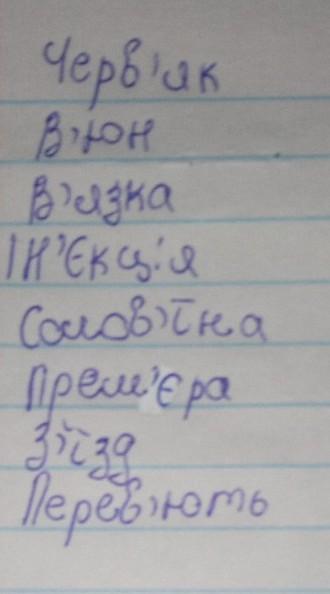 Черв'як
В'юн
В'язка
Ін'єкція
Солов'їна
Прем'єра
З'їзд
Перев'ють